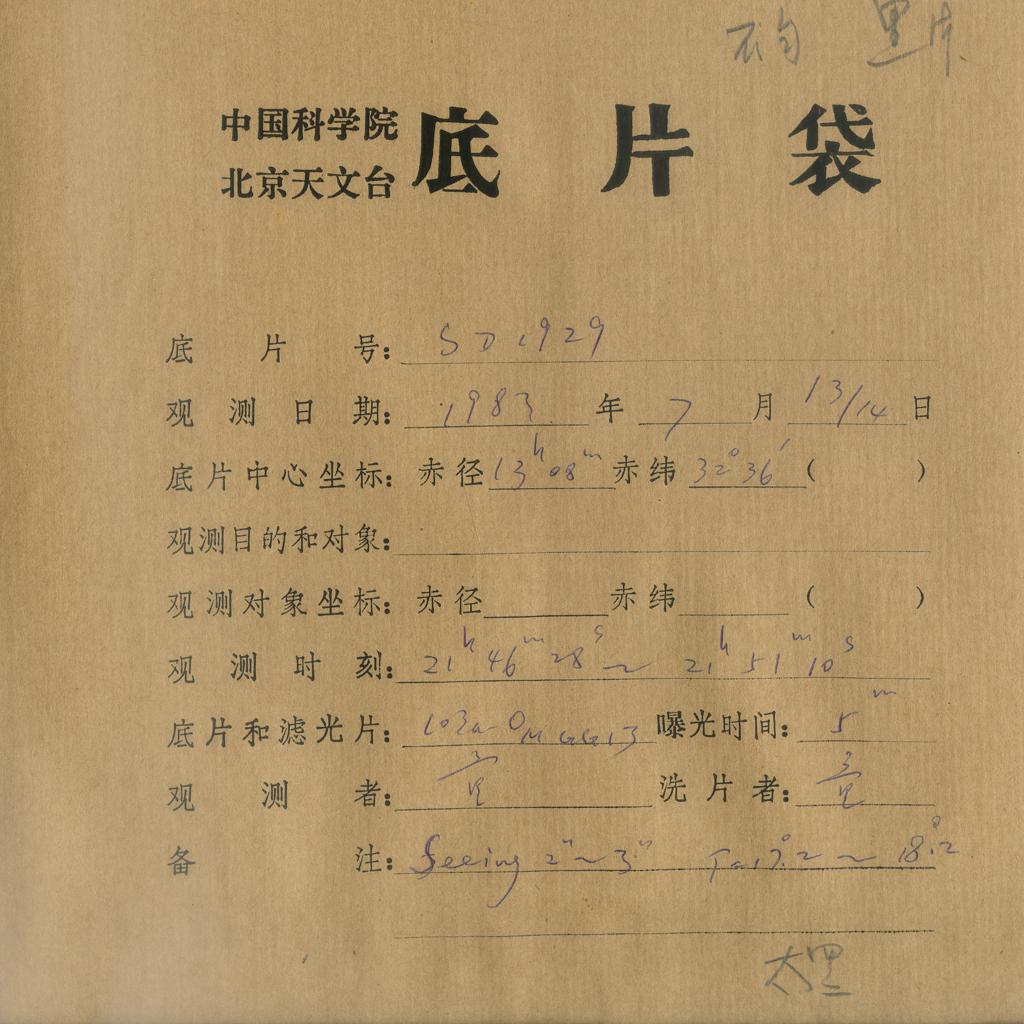 中国科学院
北京天文台
底片袋
底片号: SD 1929
观测日期: 1983 年 7 月 13/14 日
底片中心坐标: 赤径 13h08m 赤纬 32°36′ ( )
观测目的和对象:
观测对象坐标: 赤径 赤纬 ( )
观测时刻: 21h 46m 28s ~ 21h 51m 10s
底片和滤光片: 103a-O GG13 曝光时间: 5m
观测者:
洗片者:
备注: Seeing 2″~3″ T=17°.2 ~ 18°.2
太黑